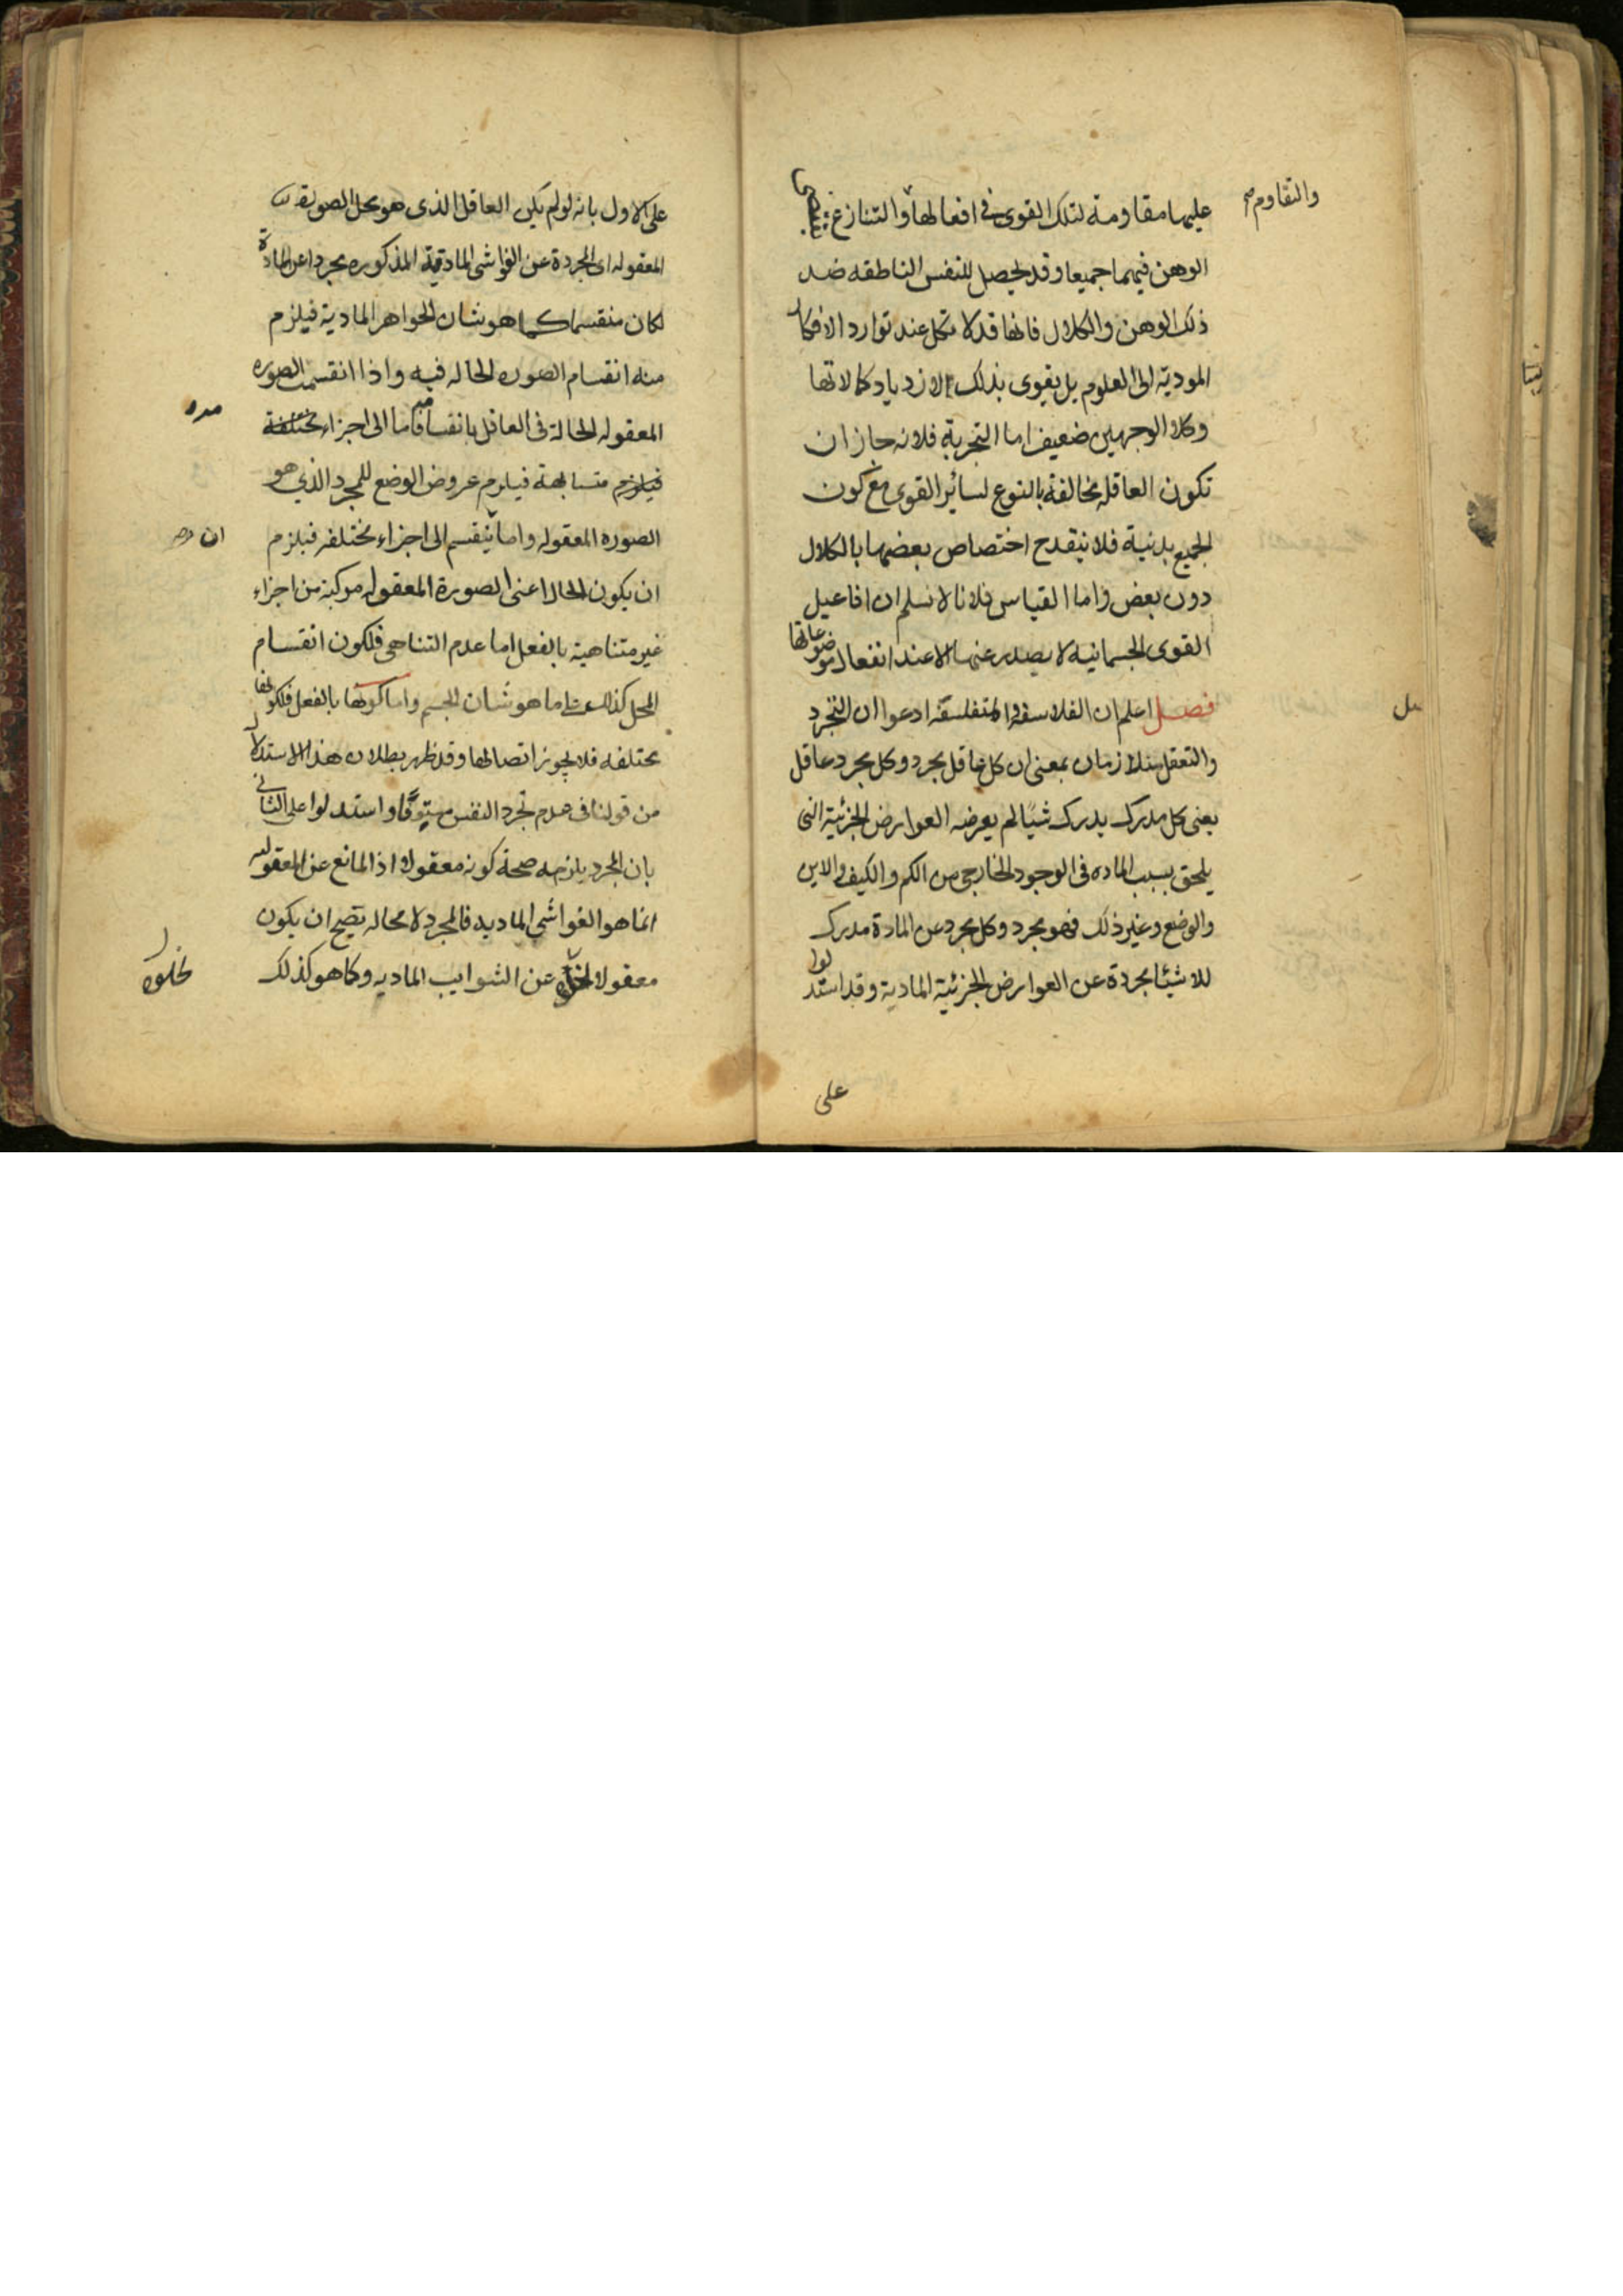 عليها مقاومة لتلك القوى فى افعالها والتنازع
والتقاوم صح
الوهن فيهما جميعا وقد يحصل للنفس الناطقه ضد
ذلك الوهن والكلال فانها قد لا تكل عند توارد الافكار
المودية الى العلوم بل يقوى بذلك لازدياد كمالاتها
وكلا الوجهين ضعيف اما التجربة فلانه جاز ان
تكون العاقله مخالفة بالنوع لسائر القوى مع كون
الجميع بدنية فلا ينقدح اختصاص بعضها بالكلال
دون بعض واما القياس فلانا لا نسلم ان افاعيل
القوى الجسمانيه لا يصدر عنها الا عند انفعال موضوعاتها
فصل اعلم ان الفلاسفة والمتفلسفة ادعوا ان التجرد
والتعقل متلازمان بمعنى ان كل عاقل مجرد وكل مجرد عاقل
يعنى كل مدرك يدرك شيئا لم يعرضه العوارض الجزئية التى
يلحق بسبب الماده فى الوجود الخارجى من الكم والكيف والاين
والوضع وغير ذلك فهو مجرد وكل مجرد عن المادة مدرك
للاشيئا مجردة عن العوارض الجزئية المادية وقد استدلوا
على
على الاول بانه لو لم يكن العاقل الذى هو محل الصورة
المعقوله اى المجردة عن الغواشى المادية المذكوره مجردا عن المادة
لكان منقسما كما هو شان الجواهر المادية فيلزم
منه انقسام الصوره الحاله فيه واذا انقسمت الصوره
المعقوله الحالة فى العاقل بانقسامه فاما الى اجزاء مختلفة
فيلزم متشابهة فيلزم عروض الوضع للمجرد الذي هو
الصوره المعقوله واما ينقسم الى اجزاء مختلفه فيلزم
ان
ان يكون الحال اعنى الصورة المعقوله مركبة من اجزاء
غير متناهية بالفعل اما عدم التناهى فلكون انقسام
المحل كذلك على ما هو شان الجسم واما كونها بالفعل فلكونها
مختلفه فلا يجوز اتصالها وقد ظهر بطلان هذا الاستدلال
من قولنا فى عدم تجرد النفس مستوفا واستدلوا على الثانى
بان المجرد يلزمه صحة كونه معقولا اذ المانع عن المعقوليه
انما هو الغواشى الماديه فالمجرد لا محاله يصح ان يكون
معقولا لخلوه عن الشوايب الماديه وكلما هو كذلك
لخلوه